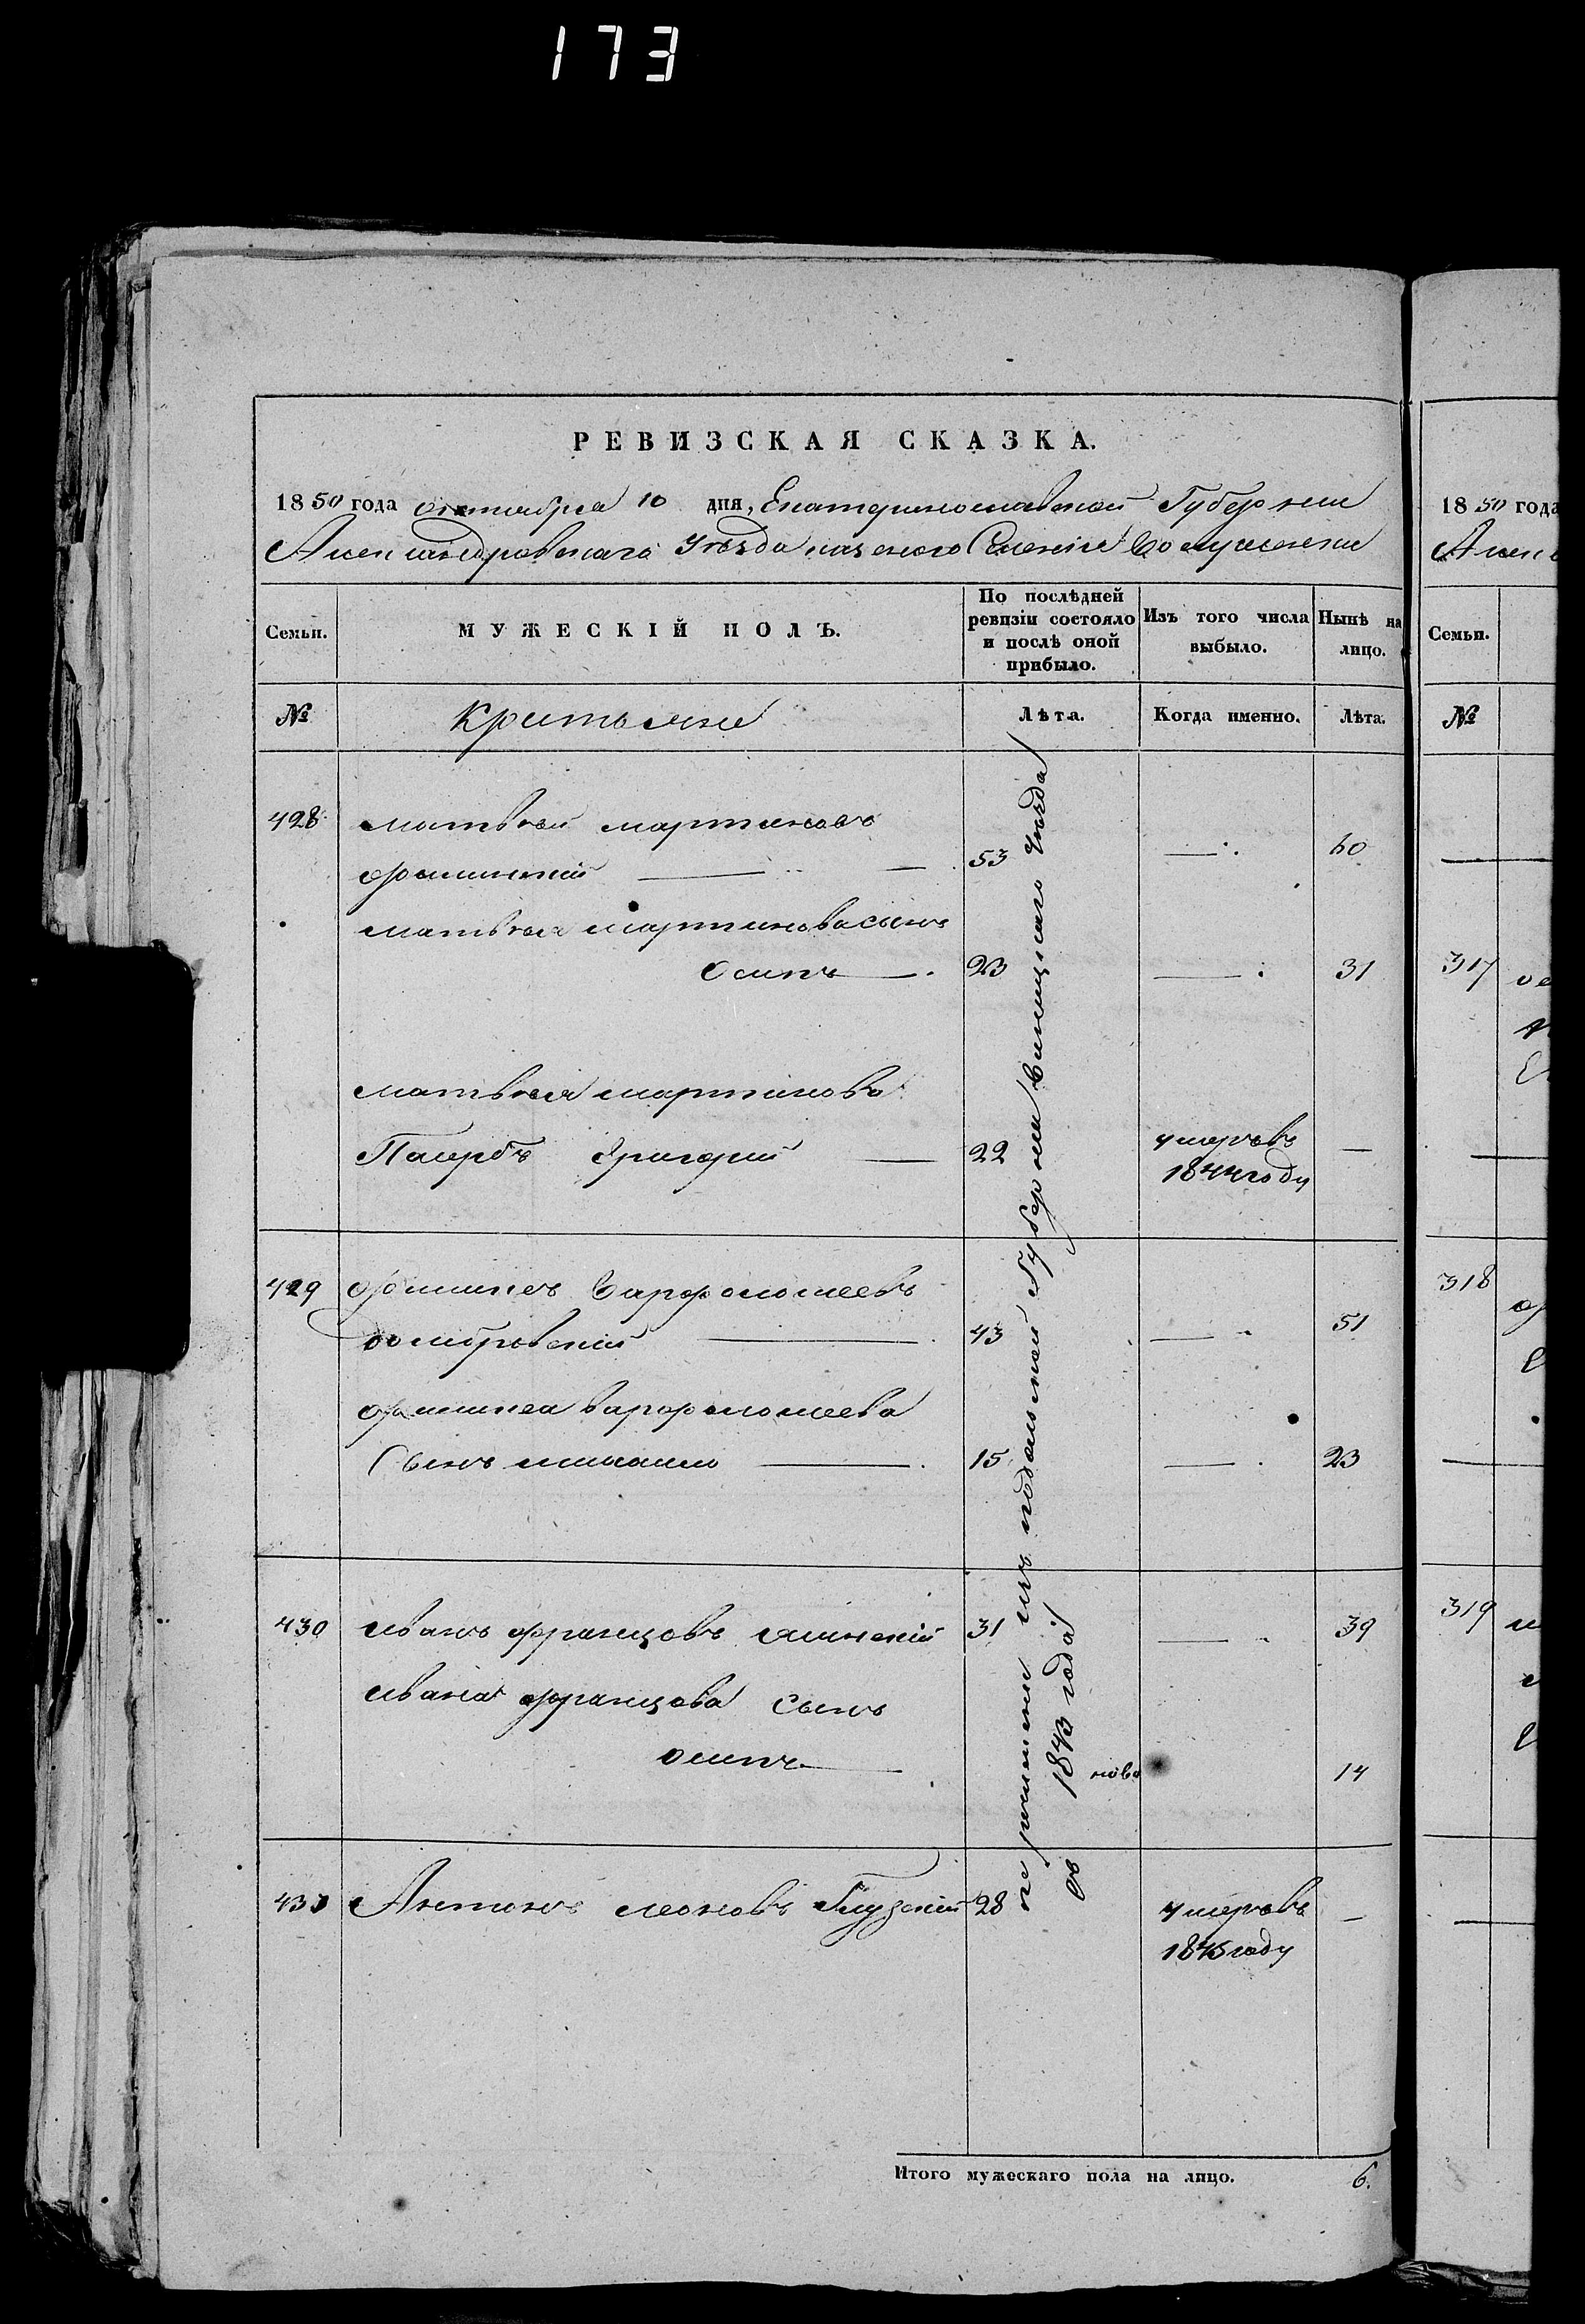 173
РЕВИЗСКАЯ СКАЗКА.
1850 года октября 10 дня, Екатеринославской Губернии
Александровскаго Уезда казеннаго Селения
Семьи.
МУЖЕСКІЙ ПОЛЪ.
По послѣдней ревизіи состояло и послѣ оной прибыло.
Изъ того числа выбыло.
Нынѣ на лицо.
№
Крестьяне
Лѣта.
Когда именно.
Лѣта.
428
Матвѣй Мартиновъ
53
60
Матвѣя Мартинова сынъ
Осипъ
23
31
Матвѣя Мартинова
Григорий
22
умеръ въ
1844 году
—
429
Варфоломеевъ
Домбровский
43
51
Варфоломеева
Сынъ
15
23
430
Иванъ Францовъ
31
39
Ивана Францова сынъ
Осипъ
ново
14
431
Антонъ Леоновъ
28
умеръ въ
1845 году
—
изъ Подольской Губернии Винницкаго Уезда
съ 1843 года
Итого мужескаго пола на лицо.
6.
1850 года
Алек
Семьи.
№
317
318
319